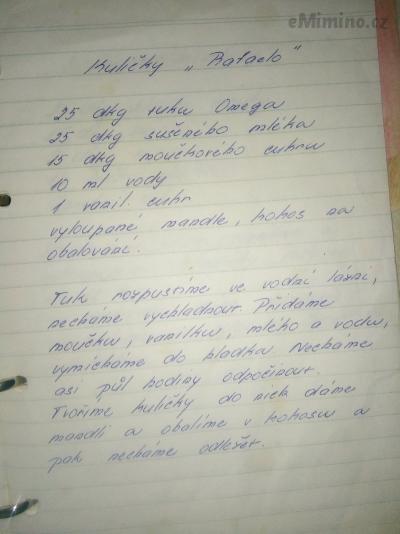 eMimino.cz
Kuličky „Rafaelo"
25 dkg tuku Omega
25 dkg sušeného mléka
15 dkg moučkového cukru
10 ml vody
1 vanil. cukr
vyloupané mandle, kokos na
obalování.
Tuk rozpustíme ve vodní lázni,
necháme vychladnout. Přidáme
moučku, vanilku, mléko a vodu,
vymícháme do hladka. Necháme
asi půl hodiny odpočinout.
Tvoříme kuličky do nich dáme
mandli a obalíme v kokosu a
pak necháme odležet.